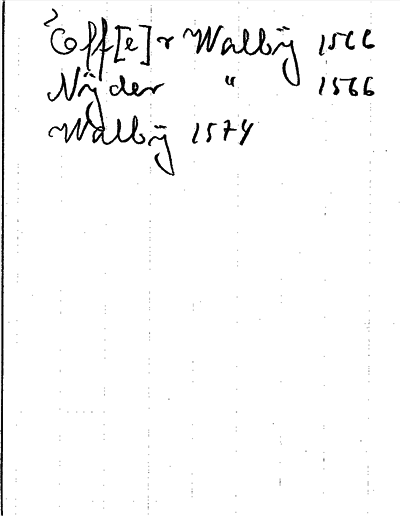 Öff[e]r Walbÿ 1566
Nÿder " 1566
Walbÿ 1574